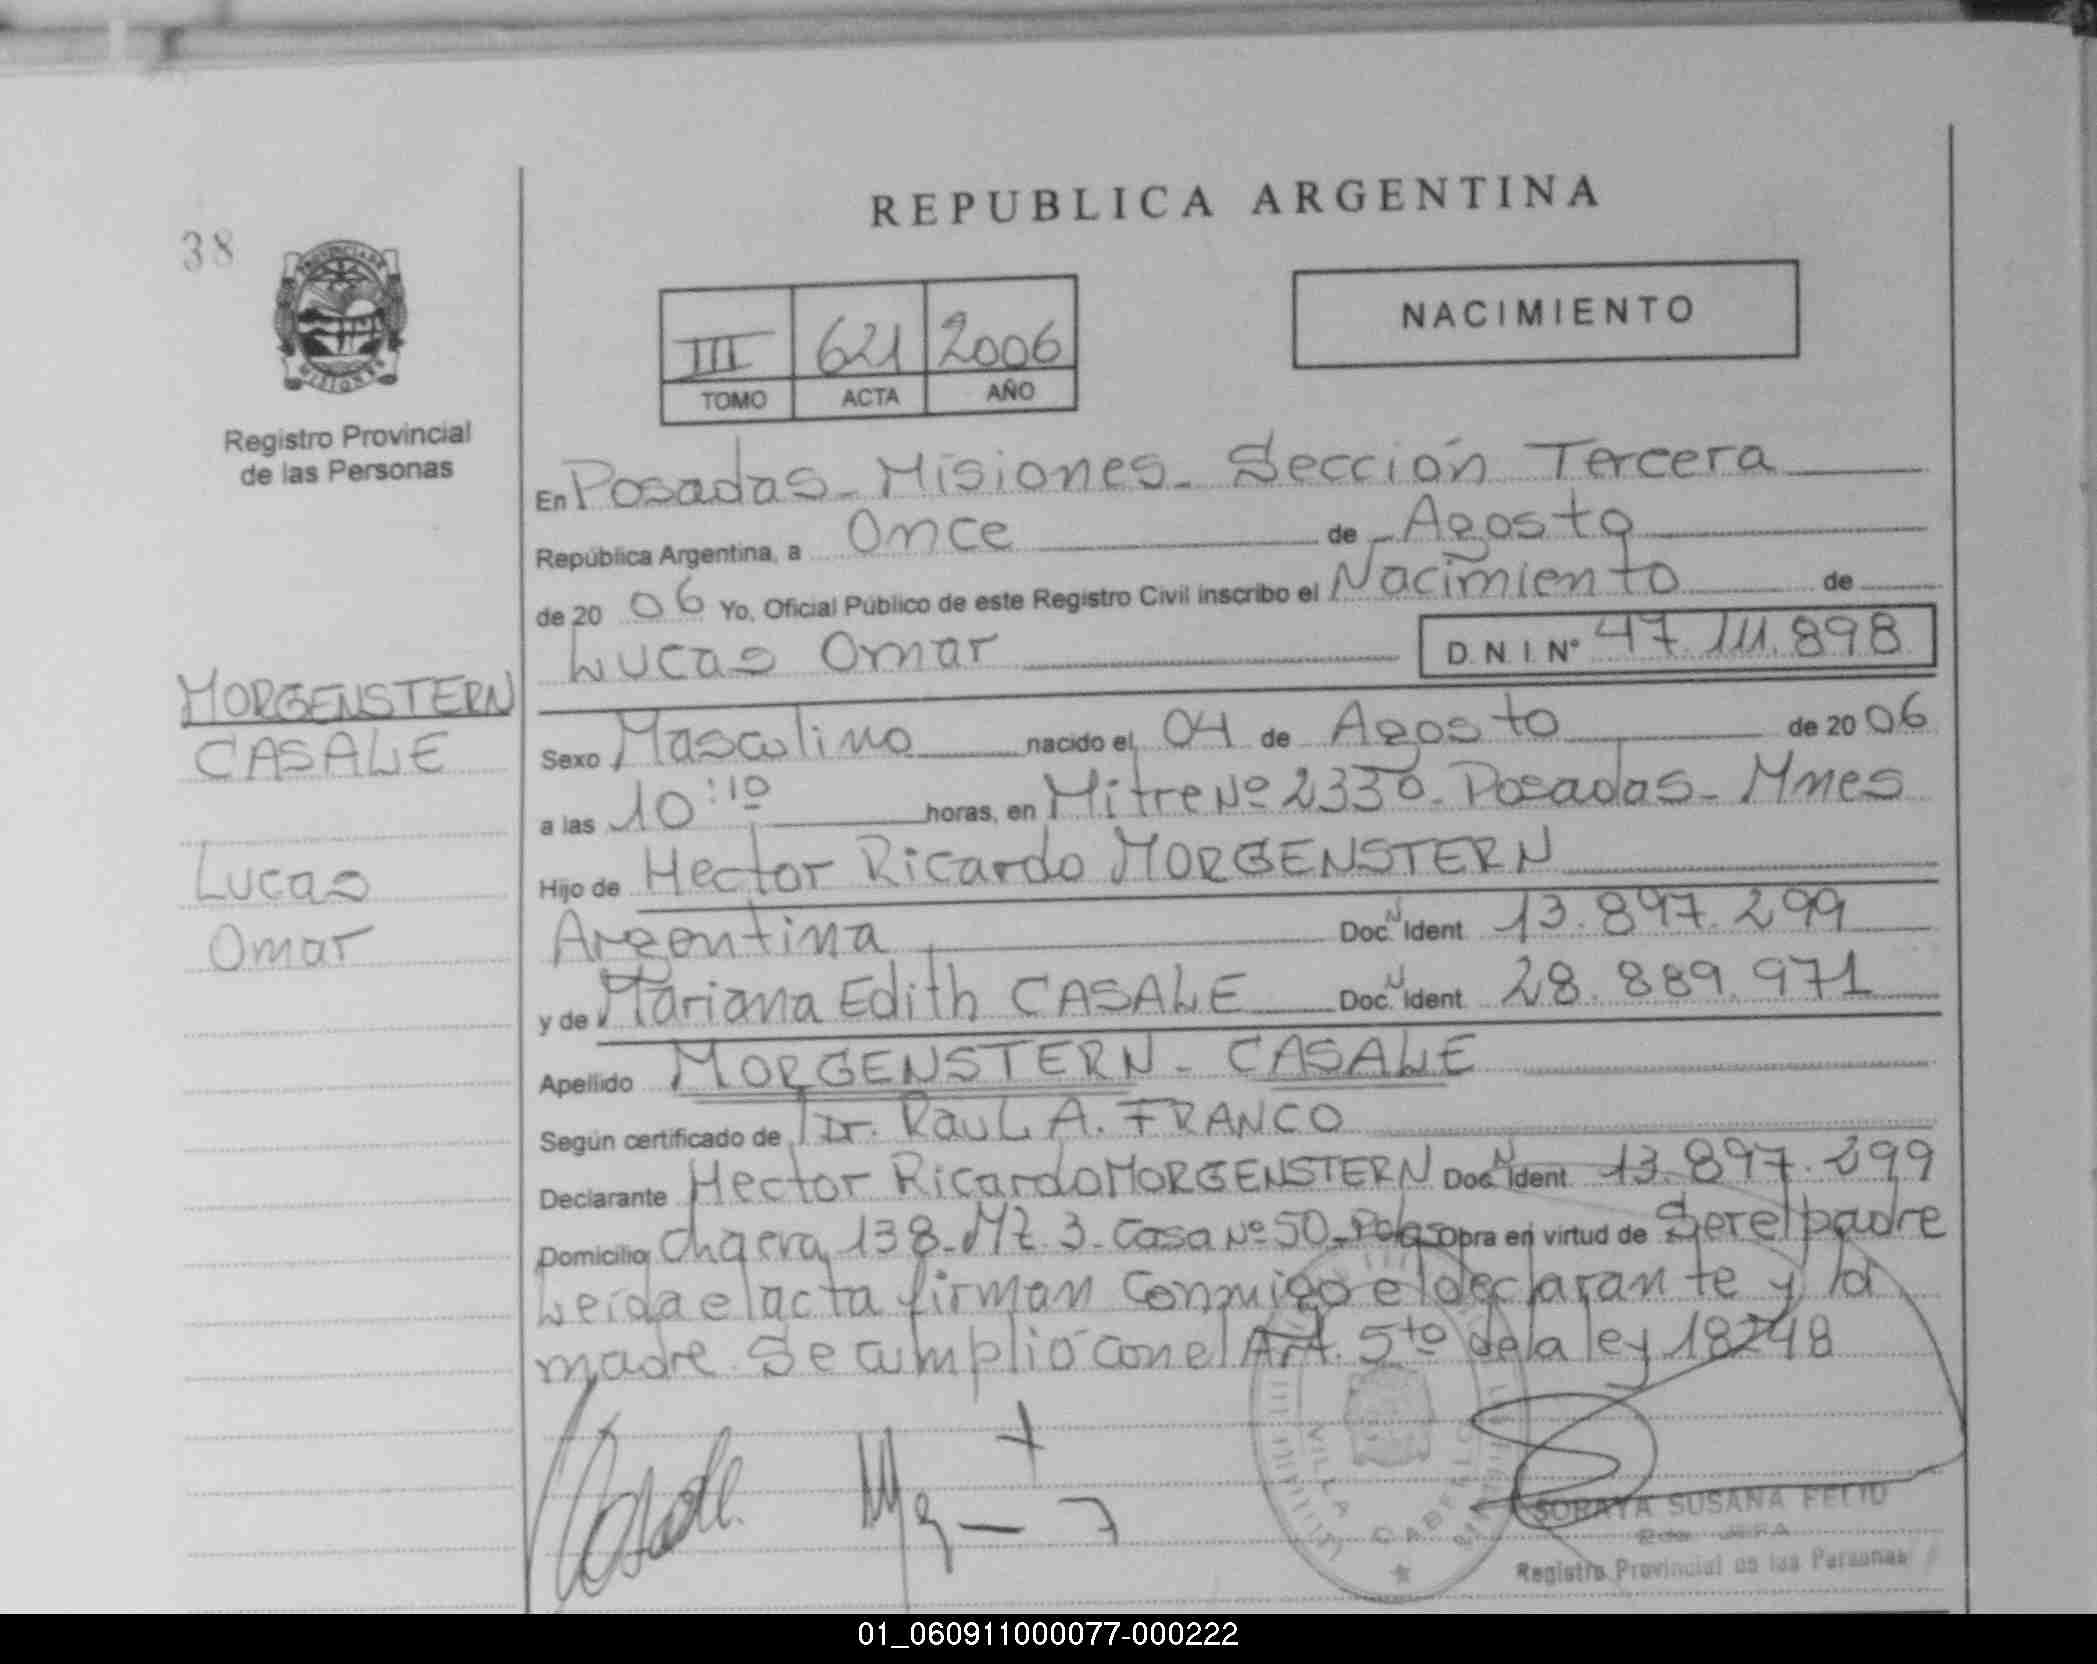 REPUBLICA ARGENTINA
38
PROVINCIA DE
MISIONES
Registro Provincial
de las Personas
III 621 2006
TOMO ACTA AÑO
NACIMIENTO
En Posadas - Misiones - Sección Tercera
República Argentina, a Once de Agosto
de 2006 Yo, Oficial Público de este Registro Civil inscribo el Nacimiento de
Lucas Omar D.N.I. Nº 47.111.898
MORGENSTERN
CASALE
Lucas
Omar
Sexo Masculino nacido el 04 de Agosto de 2006
a las 10:10 horas, en Mitre Nº 2330 - Posadas - Mnes
Hijo de Hector Ricardo MORGENSTERN
Argentina Doc. N Ident 13.897.299
y de Mariana Edith CASALE Doc. N Ident 28.889.971
Apellido MORGENSTERN - CASALE
Según certificado de Dr. Raul A. FRANCO
Declarante Hector Ricardo MORGENSTERN Doc. N Ident 13.897.299
Domicilio Chacra 138 - Mz. 3 - Casa Nº 50 - Pdas obra en virtud de Ser el padre
Leida el acta firman conmigo el declarante y la
madre. Se cumplió con el Art. 5to de la ley 18248
VILLA CABELLO
SORAYA SUSANA FELIU
JEFA
Registro Provincial de las Personas
01_060911000077-000222